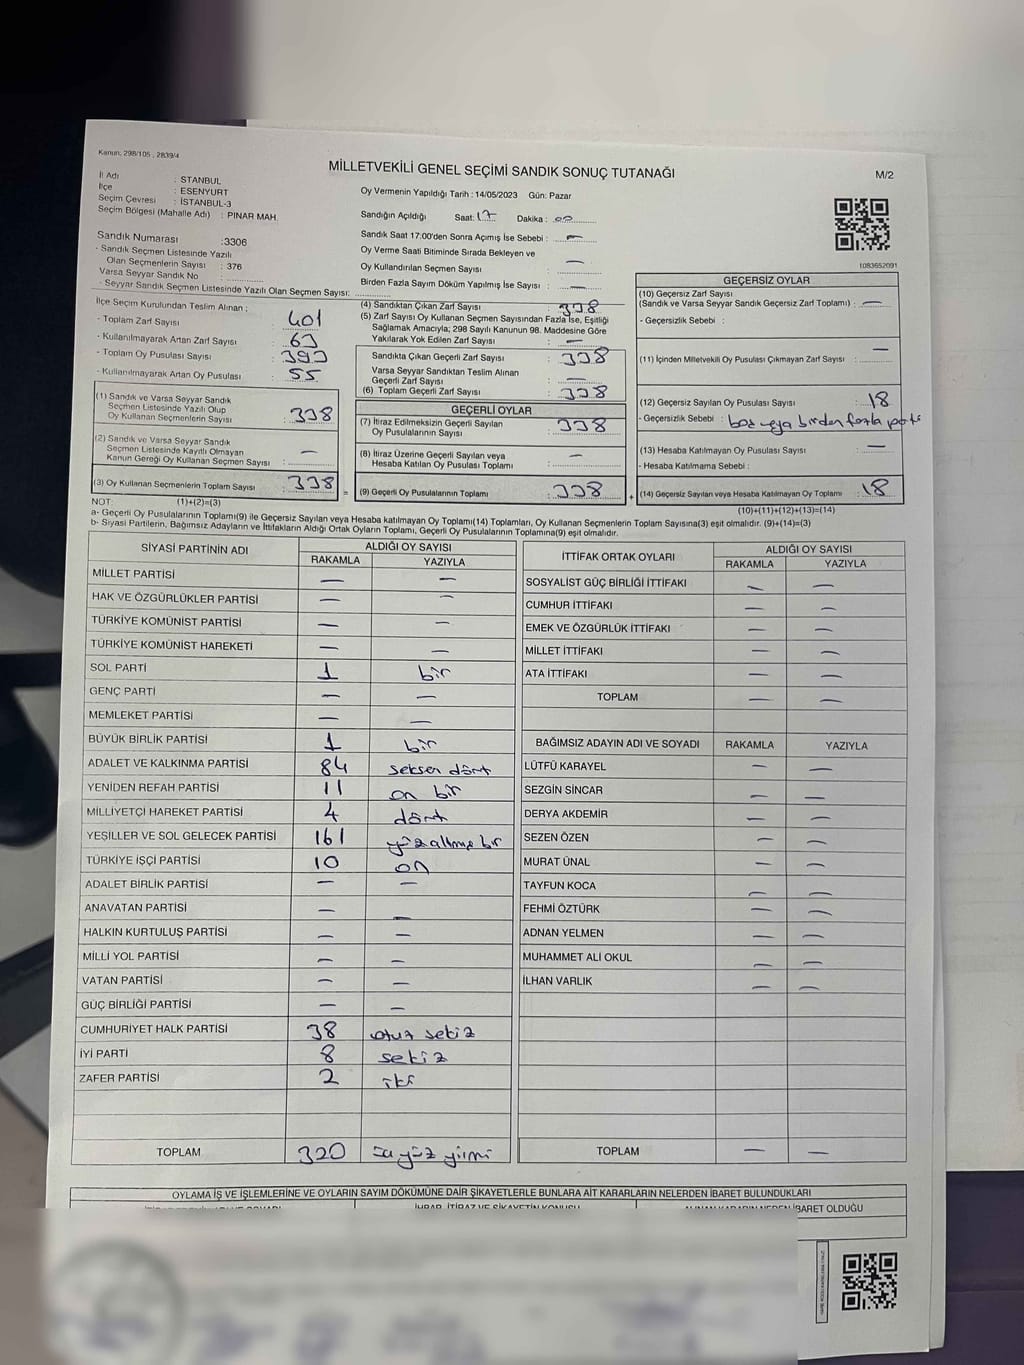 Kanun: 298/105 , 2839/4
MİLLETVEKİLİ GENEL SEÇİMİ SANDIK SONUÇ TUTANAĞI
M/2
İl Adı : STANBUL
İlçe : ESENYURT
Seçim Çevresi : İSTANBUL-3
Seçim Bölgesi (Mahalle Adı) : PINAR MAH.
Sandık Numarası :3306
- Sandık Seçmen Listesinde Yazılı
Olan Seçmenlerin Sayısı : 376
Varsa Seyyar Sandık No :
- Seyyar Sandık Seçmen Listesinde Yazılı Olan Seçmen Sayısı:
Oy Vermenin Yapıldığı Tarih : 14/05/2023 Gün: Pazar
Sandığın Açıldığı Saat: 17 Dakika : 00
Sandık Saat 17:00'den Sonra Açımış İse Sebebi : —
Oy Verme Saati Bitiminde Sırada Bekleyen ve
Oy Kullandırılan Seçmen Sayısı : —
Birden Fazla Sayım Döküm Yapılmış İse Sayısı : —
1083652091
İlçe Seçim Kurulundan Teslim Alınan ;
- Toplam Zarf Sayısı : 401
- Kullanılmayarak Artan Zarf Sayısı : 63
- Toplam Oy Pusulası Sayısı : 393
- Kullanılmayarak Artan Oy Pusulası : 55
(1) Sandık ve Varsa Seyyar Sandık
Seçmen Listesinde Yazılı Olup
Oy Kullanan Seçmenlerin Sayısı : 338
(2) Sandık ve Varsa Seyyar Sandık
Seçmen Listesinde Kayıtlı Olmayan
Kanun Gereği Oy Kullanan Seçmen Sayısı : —
(3) Oy Kullanan Seçmenlerin Toplam Sayısı : 338
(4) Sandıktan Çıkan Zarf Sayısı : 338
(5) Zarf Sayısı Oy Kullanan Seçmen Sayısından Fazla İse, Eşitliği
Sağlamak Amacıyla; 298 Sayılı Kanunun 98. Maddesine Göre
Yakılarak Yok Edilen Zarf Sayısı : —
Sandıkta Çıkan Geçerli Zarf Sayısı : 338
Varsa Seyyar Sandıktan Teslim Alınan
Geçerli Zarf Sayısı : —
(6) Toplam Geçerli Zarf Sayısı : 338
GEÇERLİ OYLAR
(7) İtiraz Edilmeksizin Geçerli Sayılan
Oy Pusulalarının Sayısı : 338
(8) İtiraz Üzerine Geçerli Sayılan veya
Hesaba Katılan Oy Pusulası Toplamı : —
= (9) Geçerli Oy Pusulalarının Toplamı : 338
GEÇERSİZ OYLAR
(10) Geçersiz Zarf Sayısı
(Sandık ve Varsa Seyyar Sandık Geçersiz Zarf Toplamı) : —
- Geçersizlik Sebebi : —
(11) İçinden Milletvekili Oy Pusulası Çıkmayan Zarf Sayısı :
(12) Geçersiz Sayılan Oy Pusulası Sayısı : 18
- Geçersizlik Sebebi : boş veya birden fazla parti
(13) Hesaba Katılmayan Oy Pusulası Sayısı : —
- Hesaba Katılmama Sebebi :
+ (14) Geçersiz Sayılan veya Hesaba Katılmayan Oy Toplamı : 18
NOT: (1)+(2)=(3)
(10)+(11)+(12)+(13)=(14)
a- Geçerli Oy Pusulalarının Toplamı(9) ile Geçersiz Sayılan veya Hesaba katılmayan Oy Toplamı(14) Toplamları, Oy Kullanan Seçmenlerin Toplam Sayısına(3) eşit olmalıdır. (9)+(14)=(3)
b- Siyasi Partilerin, Bağımsız Adayların ve İttifakların Aldığı Oyların Toplamı, Geçerli Oy Pusulalarının Toplamına(9) eşit olmalıdır.
SİYASİ PARTİNİN ADI ALDIĞI OY SAYISI
RAKAMLA YAZIYLA
MİLLET PARTİSİ — —
HAK VE ÖZGÜRLÜKLER PARTİSİ — —
TÜRKİYE KOMÜNİST PARTİSİ — —
TÜRKİYE KOMÜNİST HAREKETİ — —
SOL PARTİ 1 bir
GENÇ PARTİ — —
MEMLEKET PARTİSİ — —
BÜYÜK BİRLİK PARTİSİ 1 bir
ADALET VE KALKINMA PARTİSİ 84 seksen dört
YENİDEN REFAH PARTİSİ 11 on bir
MİLLİYETÇİ HAREKET PARTİSİ 4 dört
YEŞİLLER VE SOL GELECEK PARTİSİ 161 yüzaltmış bir
TÜRKİYE İŞÇİ PARTİSİ 10 on
ADALET BİRLİK PARTİSİ — —
ANAVATAN PARTİSİ — —
HALKIN KURTULUŞ PARTİSİ — —
MİLLİ YOL PARTİSİ — —
VATAN PARTİSİ — —
GÜÇ BİRLİĞİ PARTİSİ — —
CUMHURİYET HALK PARTİSİ 38 otuz sekiz
İYİ PARTİ 8 sekiz
ZAFER PARTİSİ 2 iki
TOPLAM 320 üç yüz yirmi
İTTİFAK ORTAK OYLARI ALDIĞI OY SAYISI
RAKAMLA YAZIYLA
SOSYALİST GÜÇ BİRLİĞİ İTTİFAKI — —
CUMHUR İTTİFAKI — —
EMEK VE ÖZGÜRLÜK İTTİFAKI — —
MİLLET İTTİFAKI — —
ATA İTTİFAKI — —
TOPLAM — —
BAĞIMSIZ ADAYIN ADI VE SOYADI RAKAMLA YAZIYLA
LÜTFÜ KARAYEL — —
SEZGİN SİNCAR — —
DERYA AKDEMİR — —
SEZEN ÖZEN — —
MURAT ÜNAL — —
TAYFUN KOCA — —
FEHMİ ÖZTÜRK — —
ADNAN YELMEN — —
MUHAMMET ALİ OKUL — —
İLHAN VARLIK — —
TOPLAM — —
OYLAMA İŞ VE İŞLEMLERİNE VE OYLARIN SAYIM DÖKÜMÜNE DAİR ŞİKAYETLERLE BUNLARA AİT KARARLARIN NELERDEN İBARET BULUNDUKLARI
İHBAR, İTİRAZ VE ŞİKAYETİN KONUSU
ALINAN KARARIN NEDEN İBARET OLDUĞU